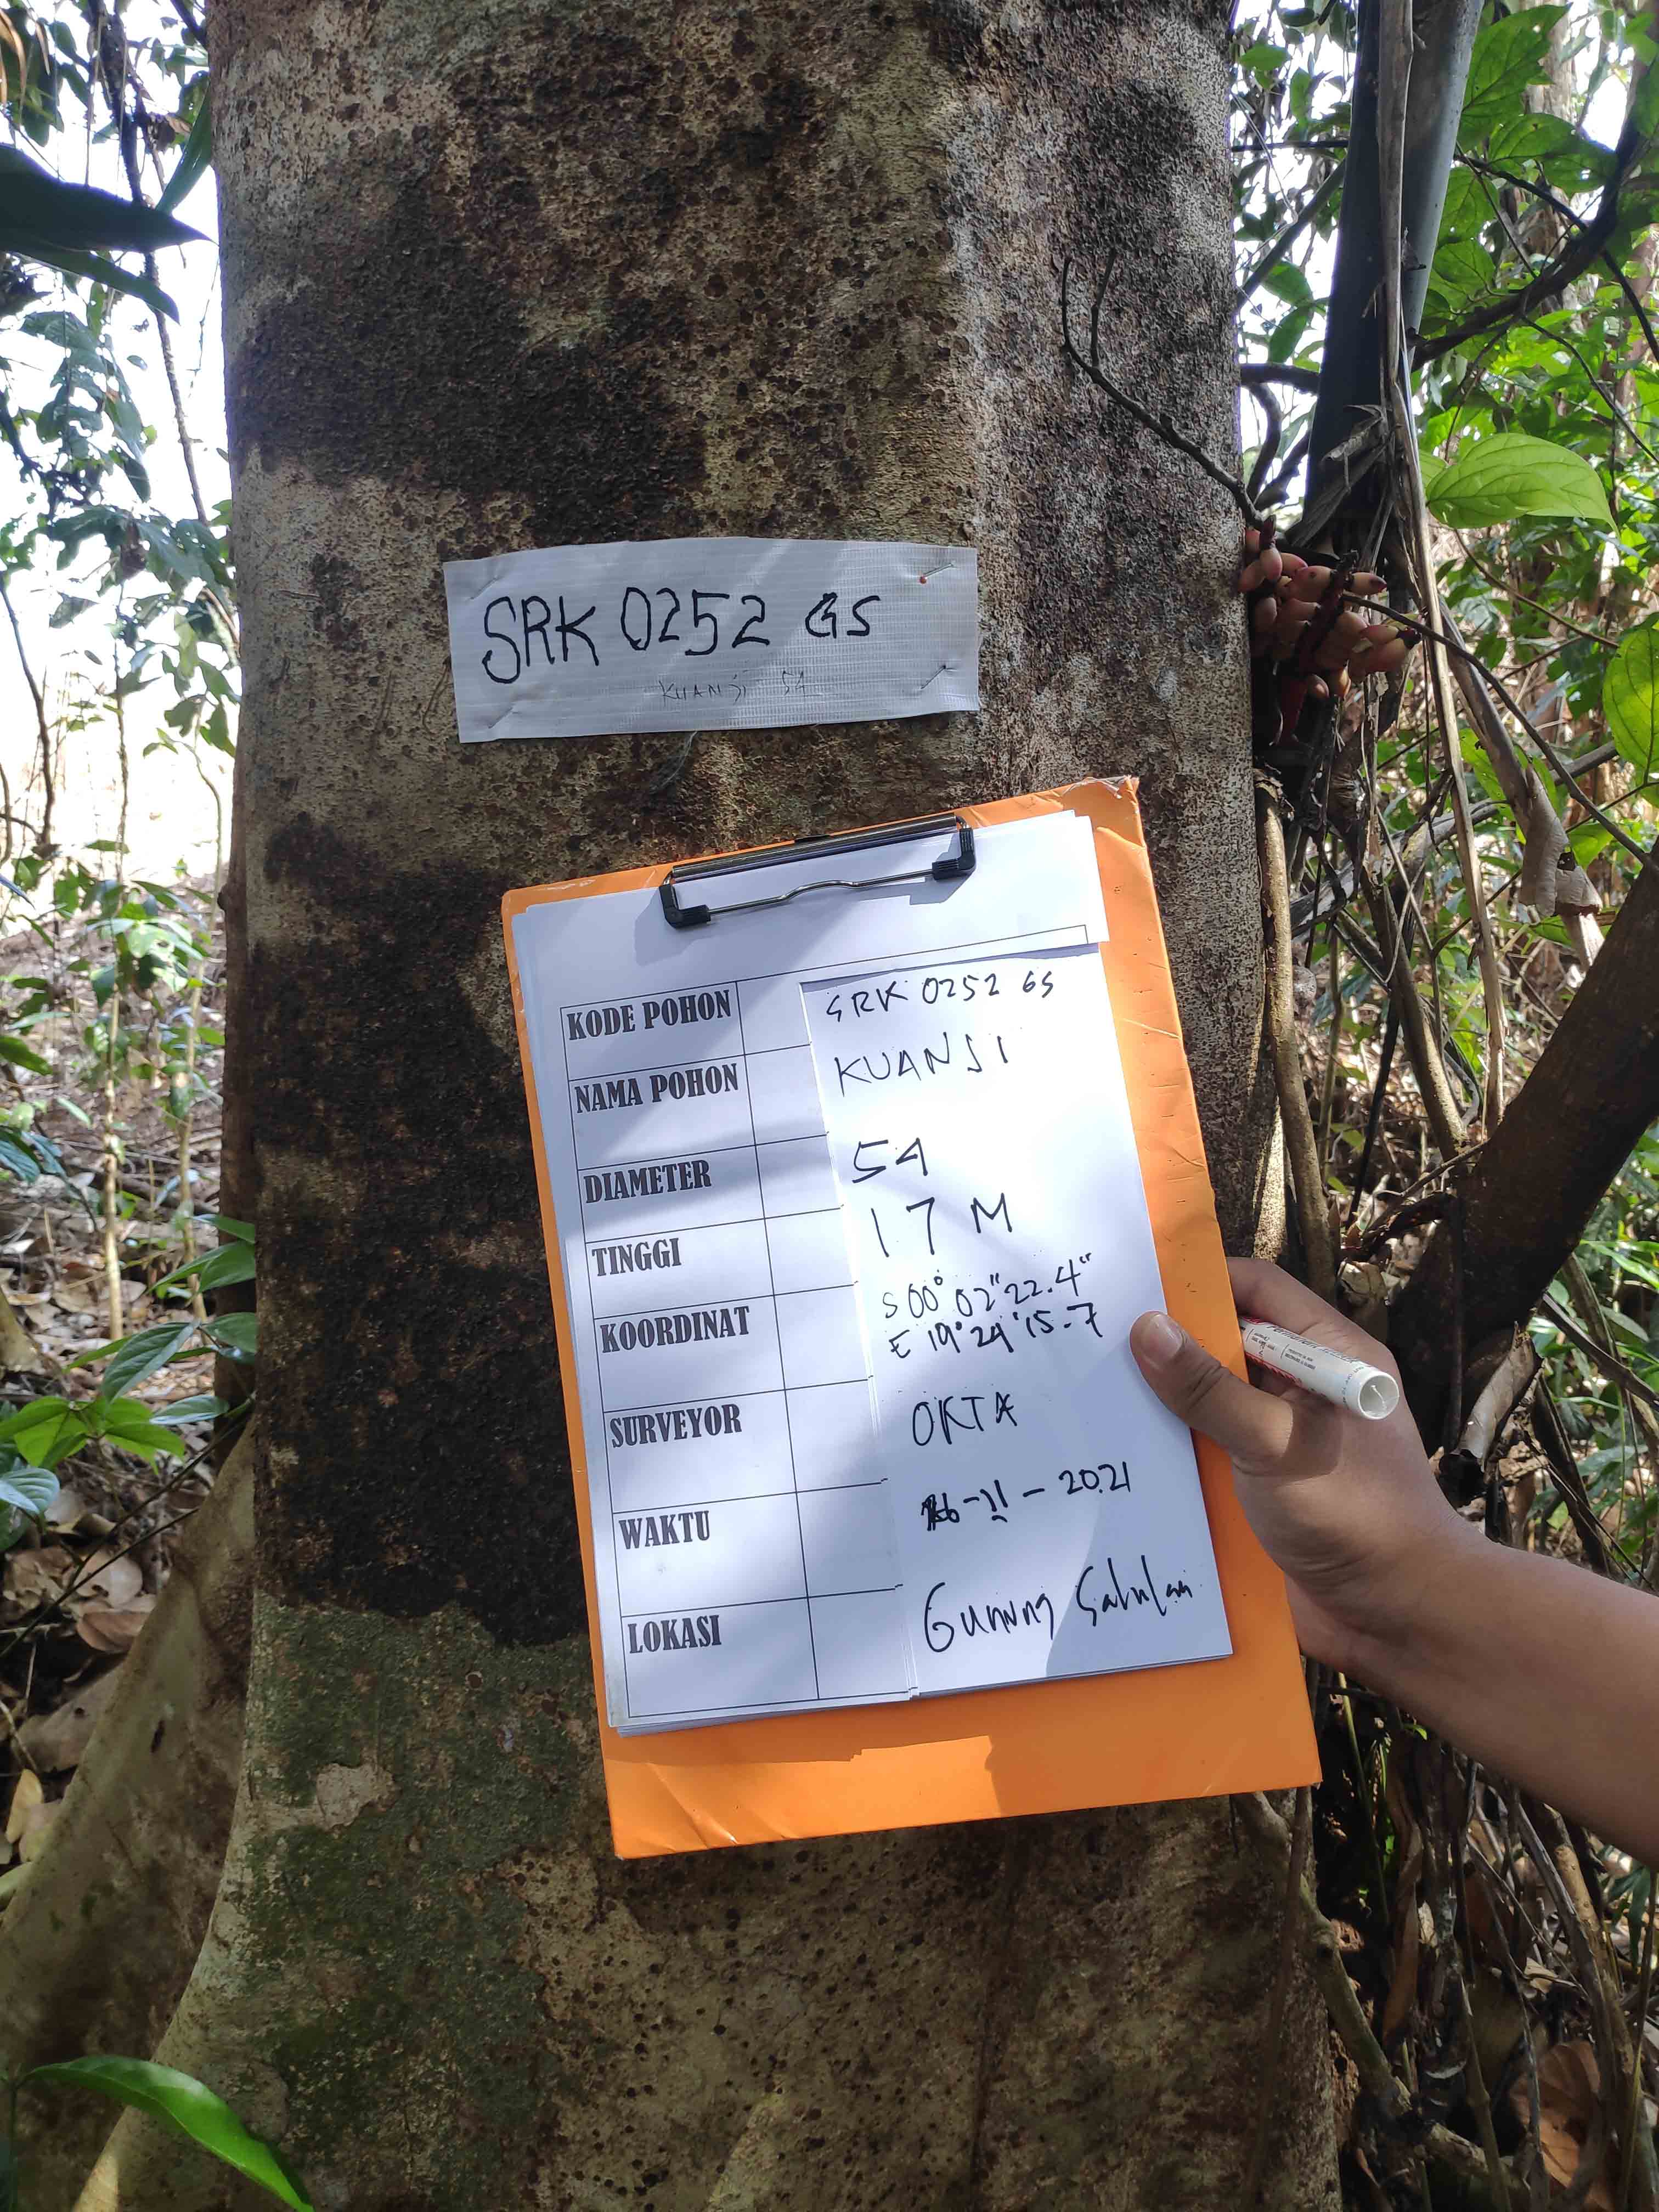 SRK 0252 GS
KUANSI 54
KODE POHON SRK 0252 GS
NAMA POHON KUANSI
DIAMETER 54
TINGGI 17 M
KOORDINAT S 00° 02" 22.4"
E 19° 24' 15.7
SURVEYOR OKTA
WAKTU 16-11-2021
LOKASI Gunung Sabulan